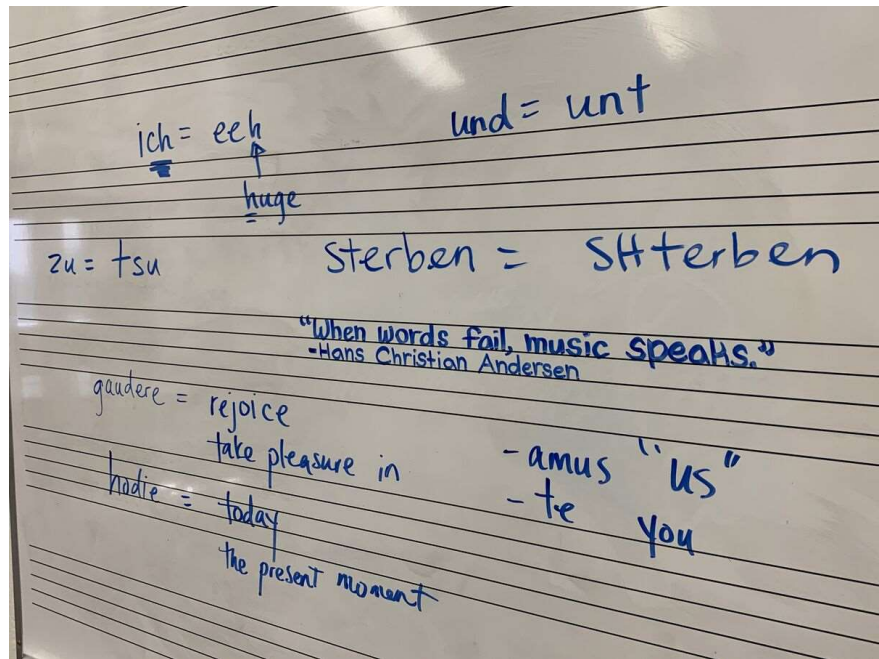 ich = eeh
huge
und = unt
zu = tsu
sterben = SHterben
"When words fail, music speaks."
-Hans Christian Andersen
gaudere = rejoice
take pleasure in
hodie = today
the present moment
-amus "us"
-te you